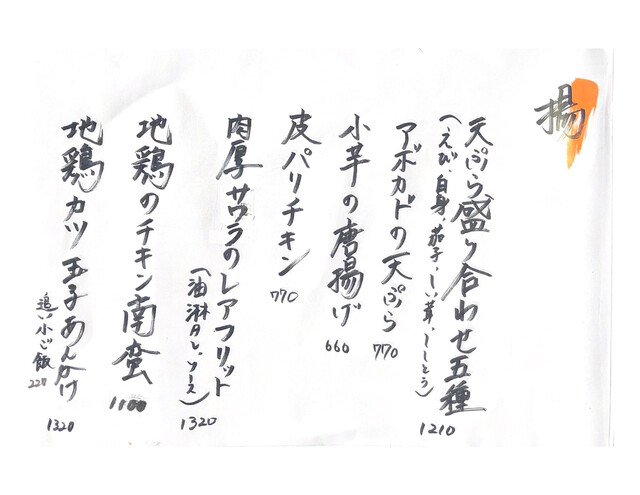 揚
天ぷら盛り合わせ五種
(えび、白身、茄子、しい茸、ししとう)
1210
アボカドの天ぷら
770
小芋の唐揚げ
660
皮パリチキン
770
肉厚サワラのレアフリット
(油淋ソース)
1320
地鶏のチキン南蛮
1100
地鶏カツ玉子あんかけ
1320
追い小ご飯
220